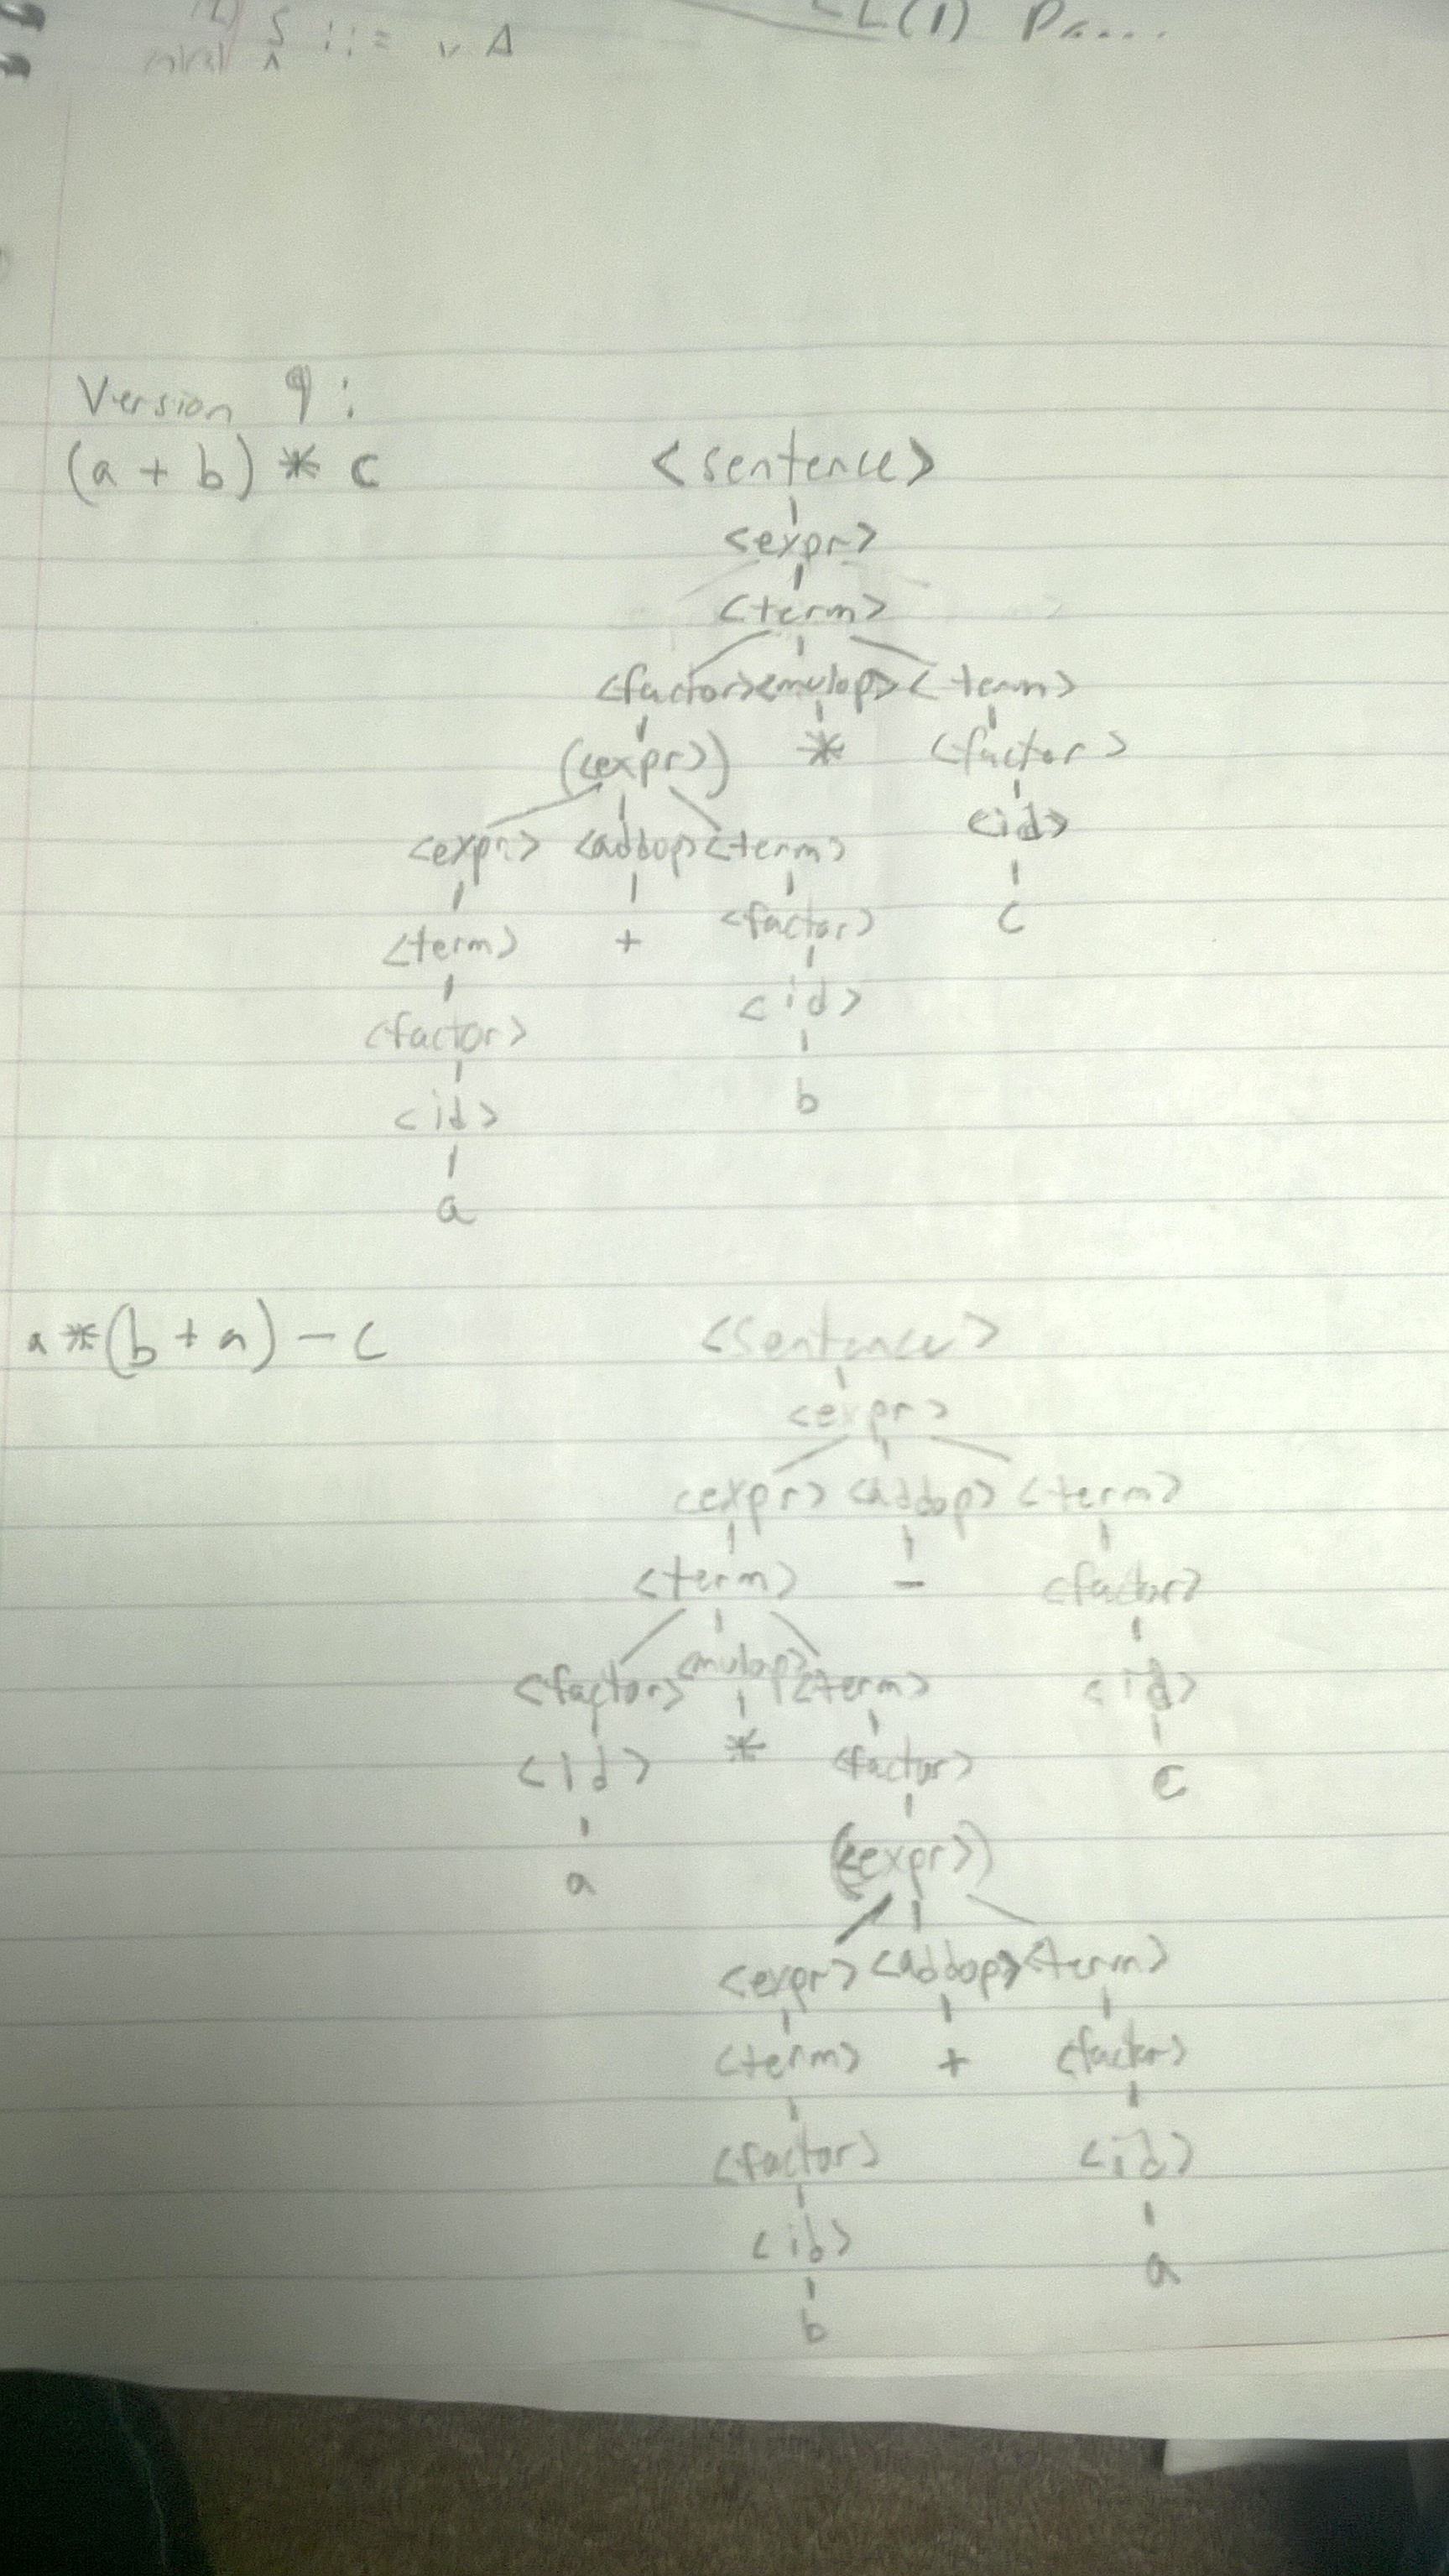 S ::= A
LL(1)
Version 9:
(a + b) * c
<sentence>
<expr>
<term>
<factor> <mulop> <term>
(<expr>) * <factor>
<id>
<expr> <addop> <term>
c
<term> + <factor>
<id>
<factor>
b
<id>
a
a * (b + a) - c
<sentence>
<expr>
<expr> <addop> <term>
<term> - <factor>
<factor> <mulop> <term> <id>
<id> * <factor> c
a (<expr>)
<expr> <addop> <term>
<term> + <factor>
<factor> <id>
<id> a
b